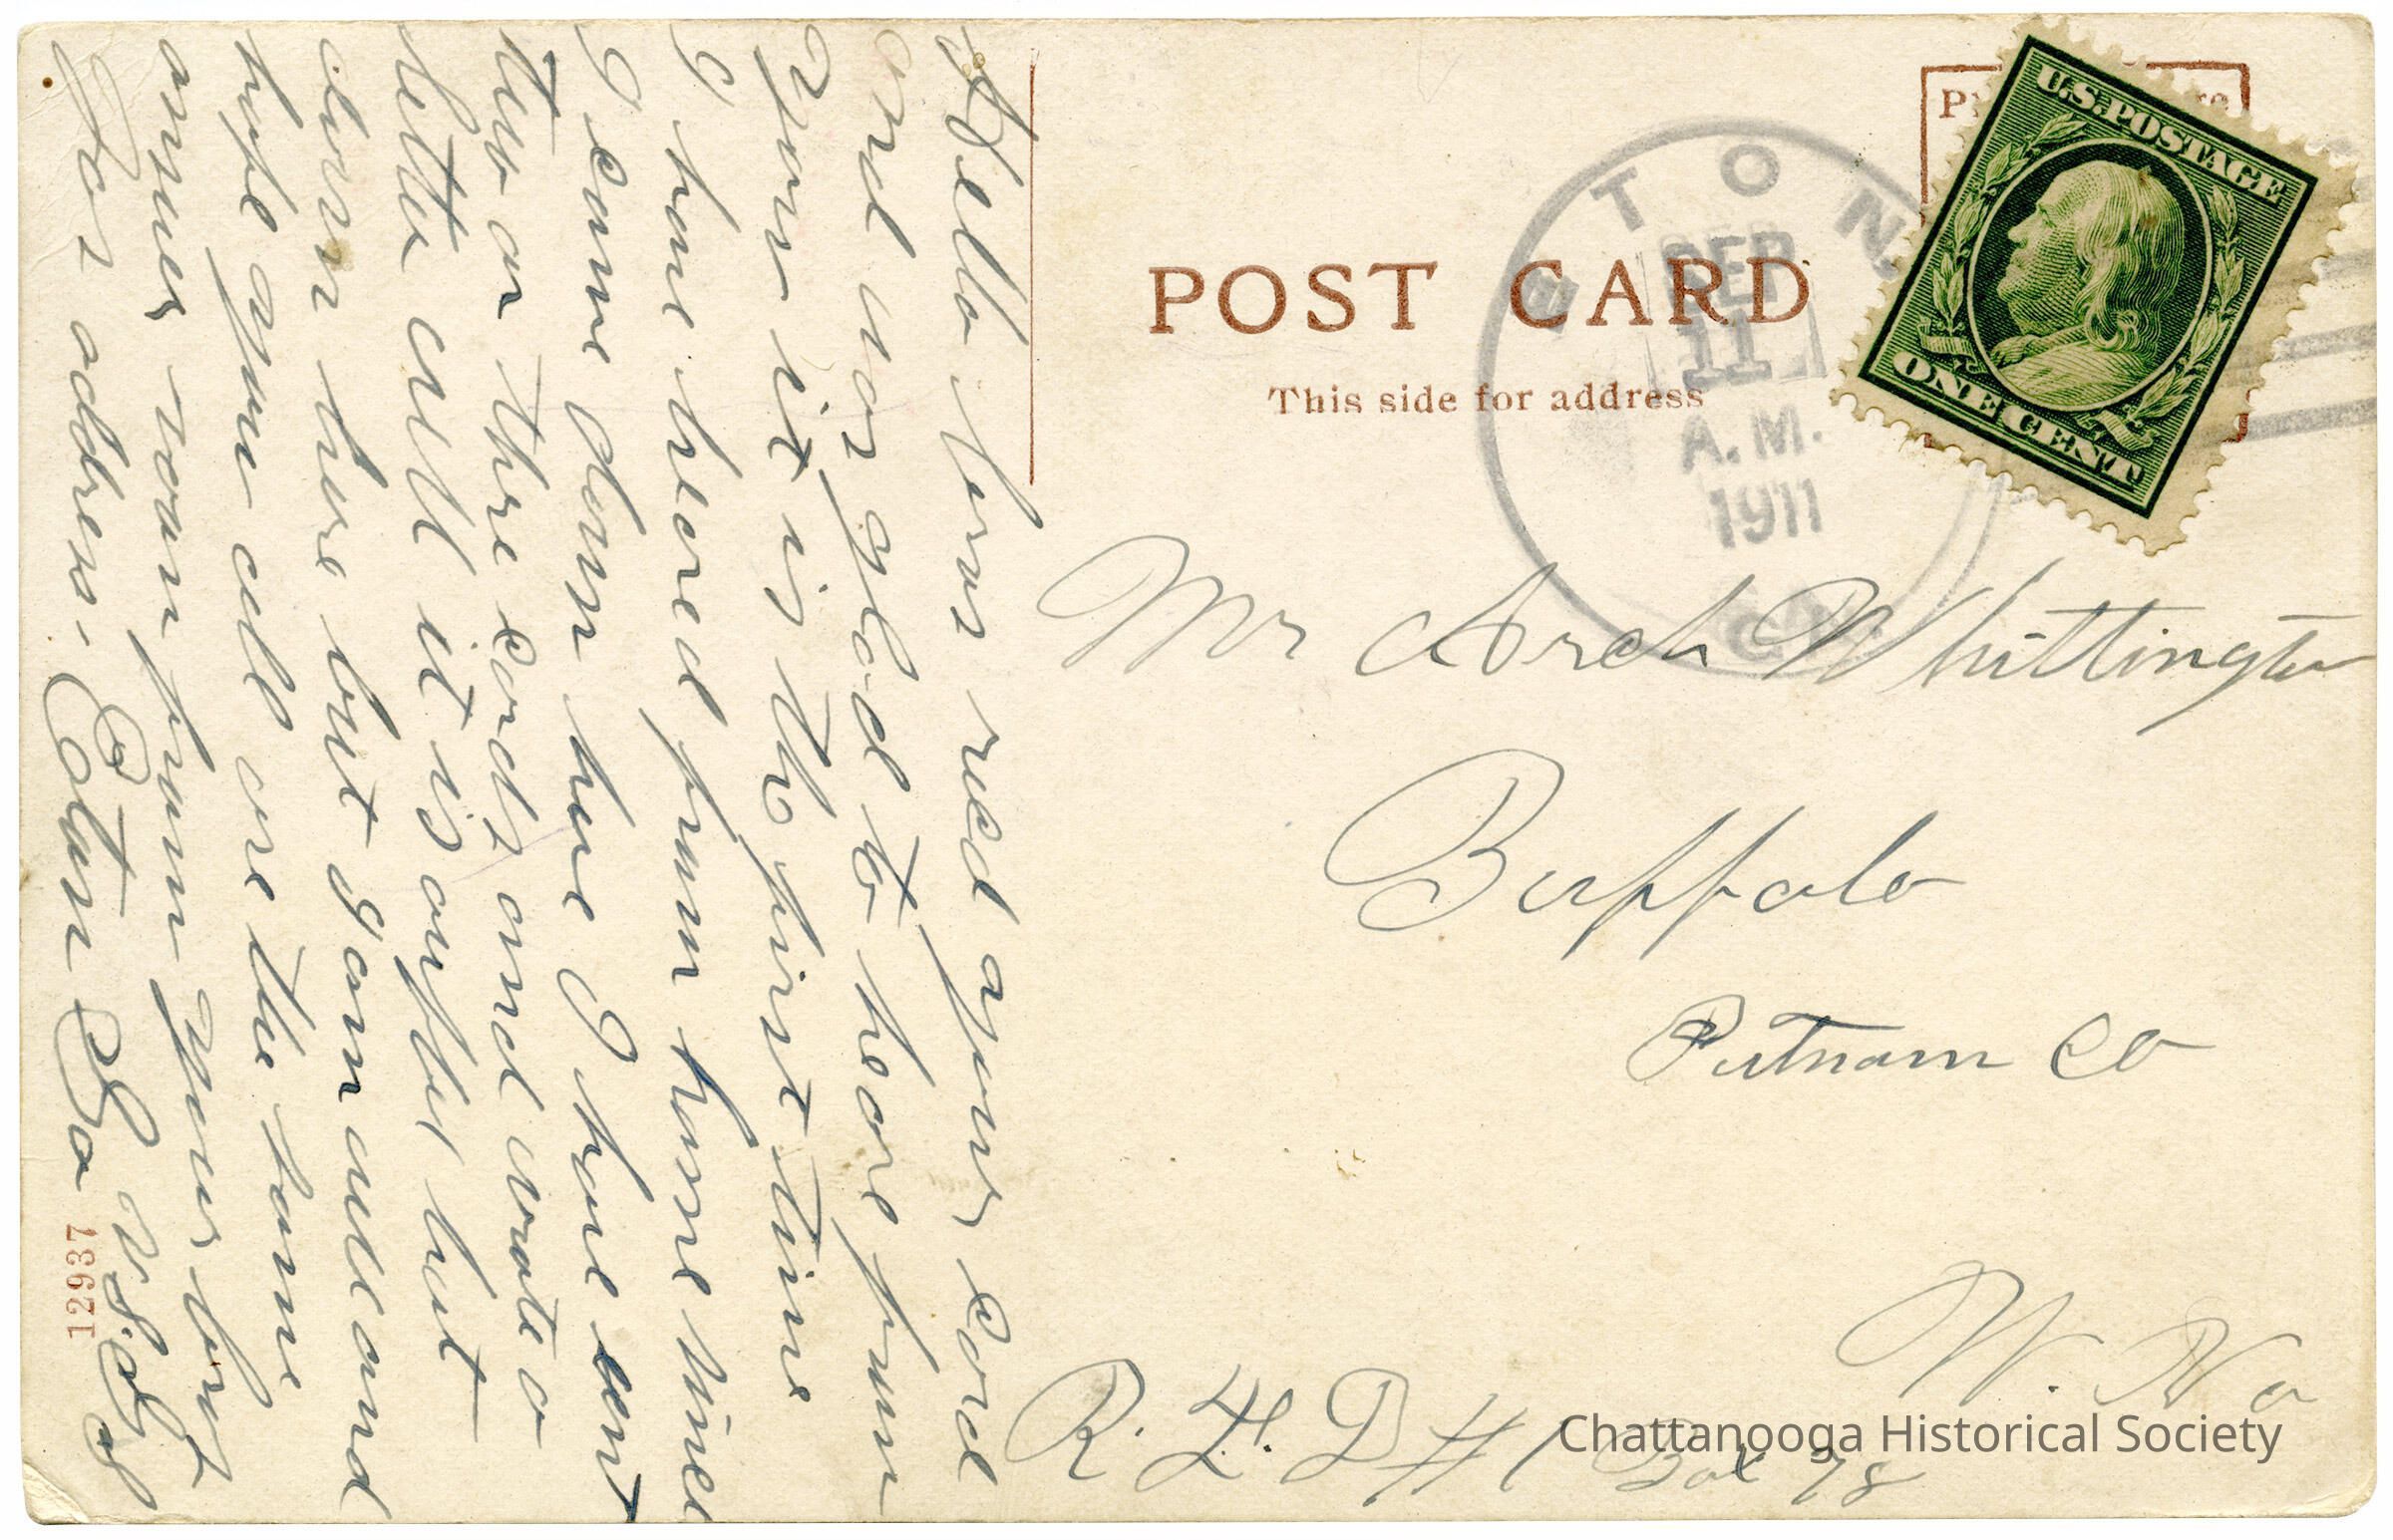 POST CARD
This side for address
U.S. POSTAGE
ONE CENT
TON,
SEP
11
A.M.
1911
GA.
Mr Arch Whittington
Buffalo
Putnam Co
W. Va
R. F. D # 1 Box 78
Hello bros recd your card
and was glad to heare from
you it is the first time
I have heared from home since
I came down here I have sent
two or three cards and wrote a
letter it is awful hot
down here but I am well and
hope you all are the same
answer soon from your brot
for address. Eaton Ga
12937
Chattanooga Historical Society